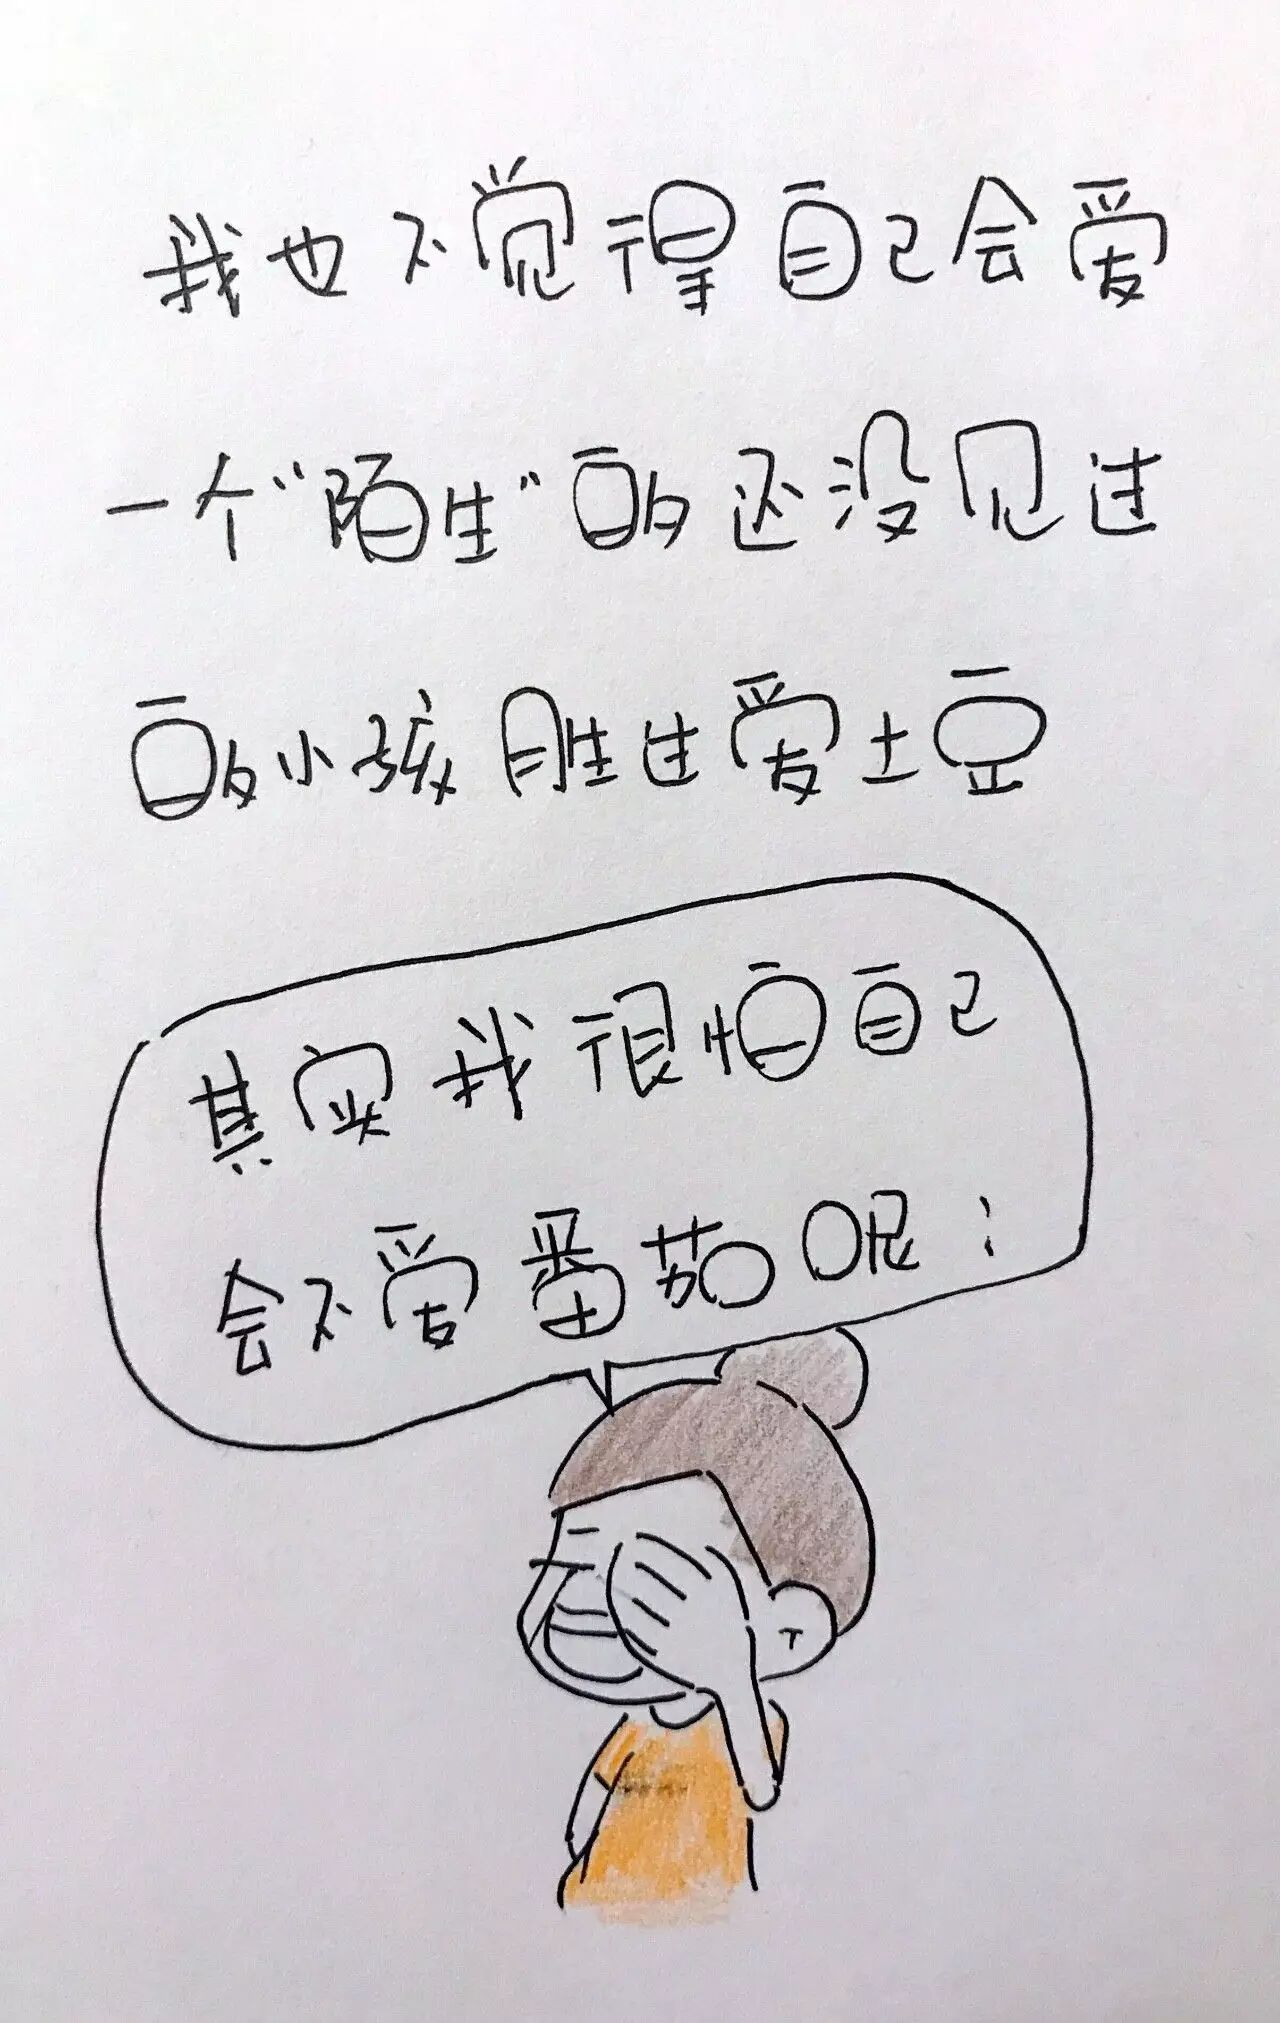 我也不觉得自己会爱
一个“陌生”的还没见过
的小孩胜过爱土豆
其实我很怕自己
会不爱番茄呢；